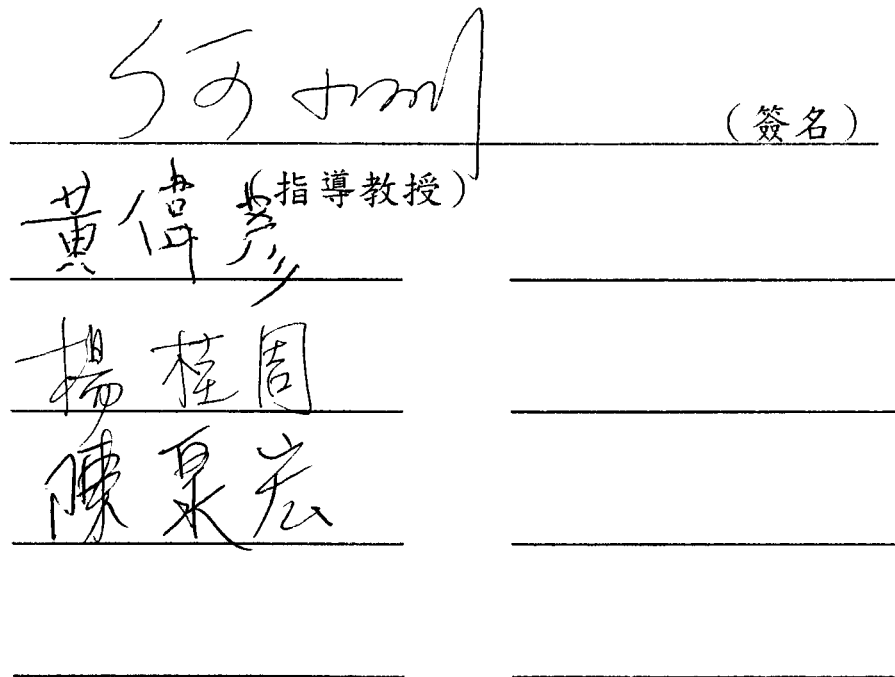 何 (簽名)
(指導教授)
黃偉彥
楊桂周
陳泉宏